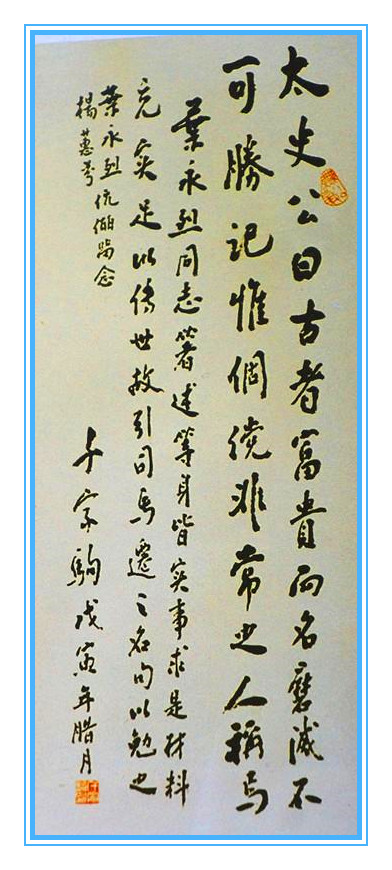 太史公曰古者富貴而名磨滅不
可勝記惟倜儻非常之人稱焉
葉永烈同志著述等身皆实事求是材料
充实足以傳世故引司馬遷之名句以勉之
葉永烈伉儷留念
楊蕙芬
千家駒戊寅年腊月